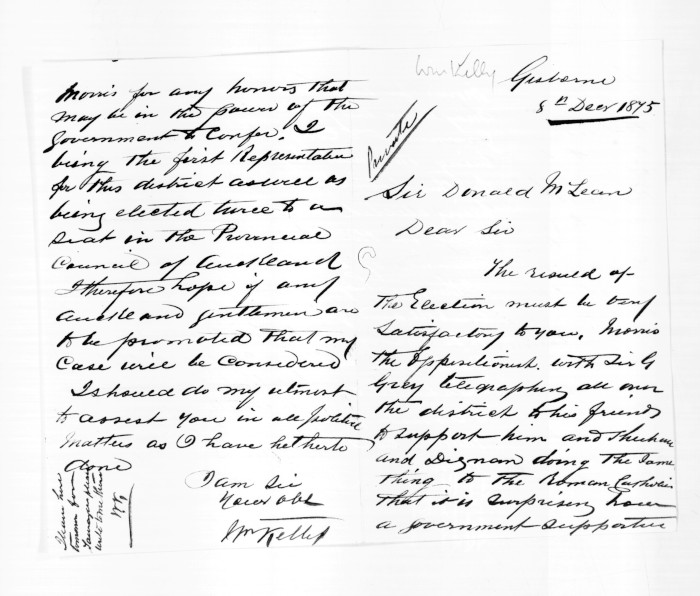 Wm Kelly
Gisborne
8th Decr 1875
Private
Sir Donald McLean
Dear Sir
The result of
the Election must be very
satisfactory to you. Morris
the Oppositionist. with Sir G
Grey telegraphing all over
the district to his friends
to support him and Sheehan
and Dignan doing the same
thing to the Roman Catholics
that it is surprising how
a government supporter
Morris for any honors that
may be in the power of the
Government to Confer. I
being the first Representative
for this district as well as
being elected twice to a
seat in the Provincial
Council of Auckland
I therefore hope if any
Auckland gentlemen are
to be promoted that my
case will be considered
I should do my utmost
to assest you in all political
matters as I have hetherto
done
I am Sir
Your obt
Wm Kelly